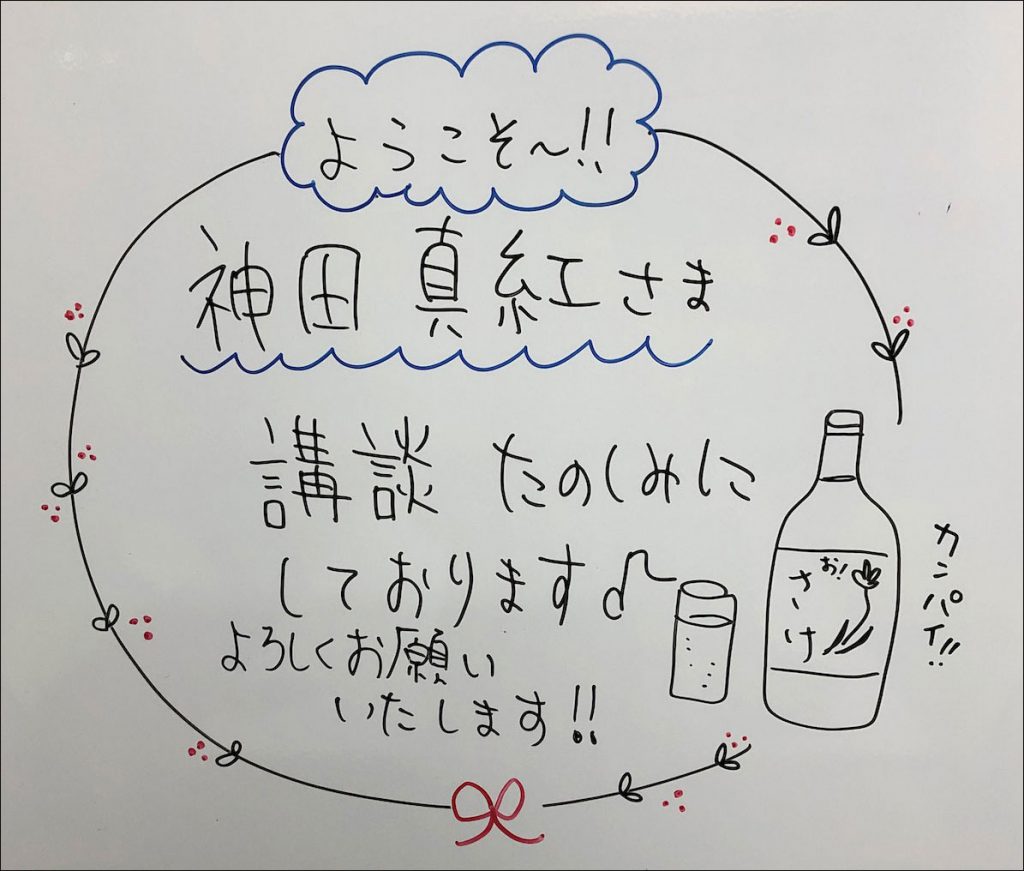 ようこそ〜!!
神田 真紅さま
講談 たのしみに
しております♪
よろしくお願い
いたします!!
お!
さけ
カンパイ!!